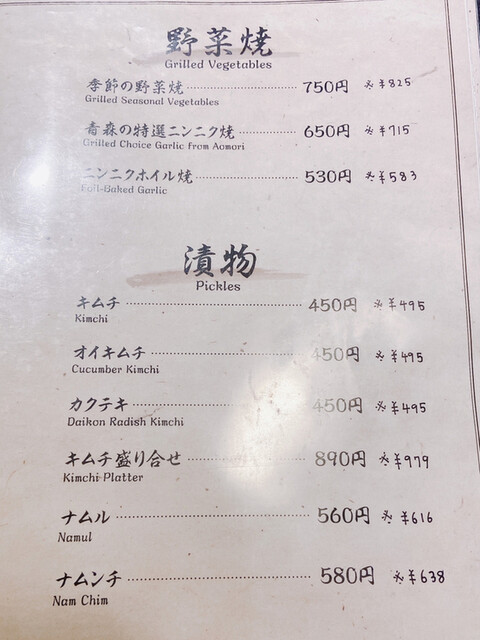 野菜焼
Grilled Vegetables
季節の野菜焼 750円 ※¥825
Grilled Seasonal Vegetables
青森の特選ニンニク焼 650円 ※¥715
Grilled Choice Garlic from Aomori
ニンニクホイル焼 530円 ※¥583
Foil-Baked Garlic
漬物
Pickles
キムチ 450円 ※¥495
Kimchi
オイキムチ 450円 ※¥495
Cucumber Kimchi
カクテキ 450円 ※¥495
Daikon Radish Kimchi
キムチ盛り合せ 890円 ※¥979
Kimchi Platter
ナムル 560円 ※¥616
Namul
ナムンチ 580円 ※¥638
Nam Chim